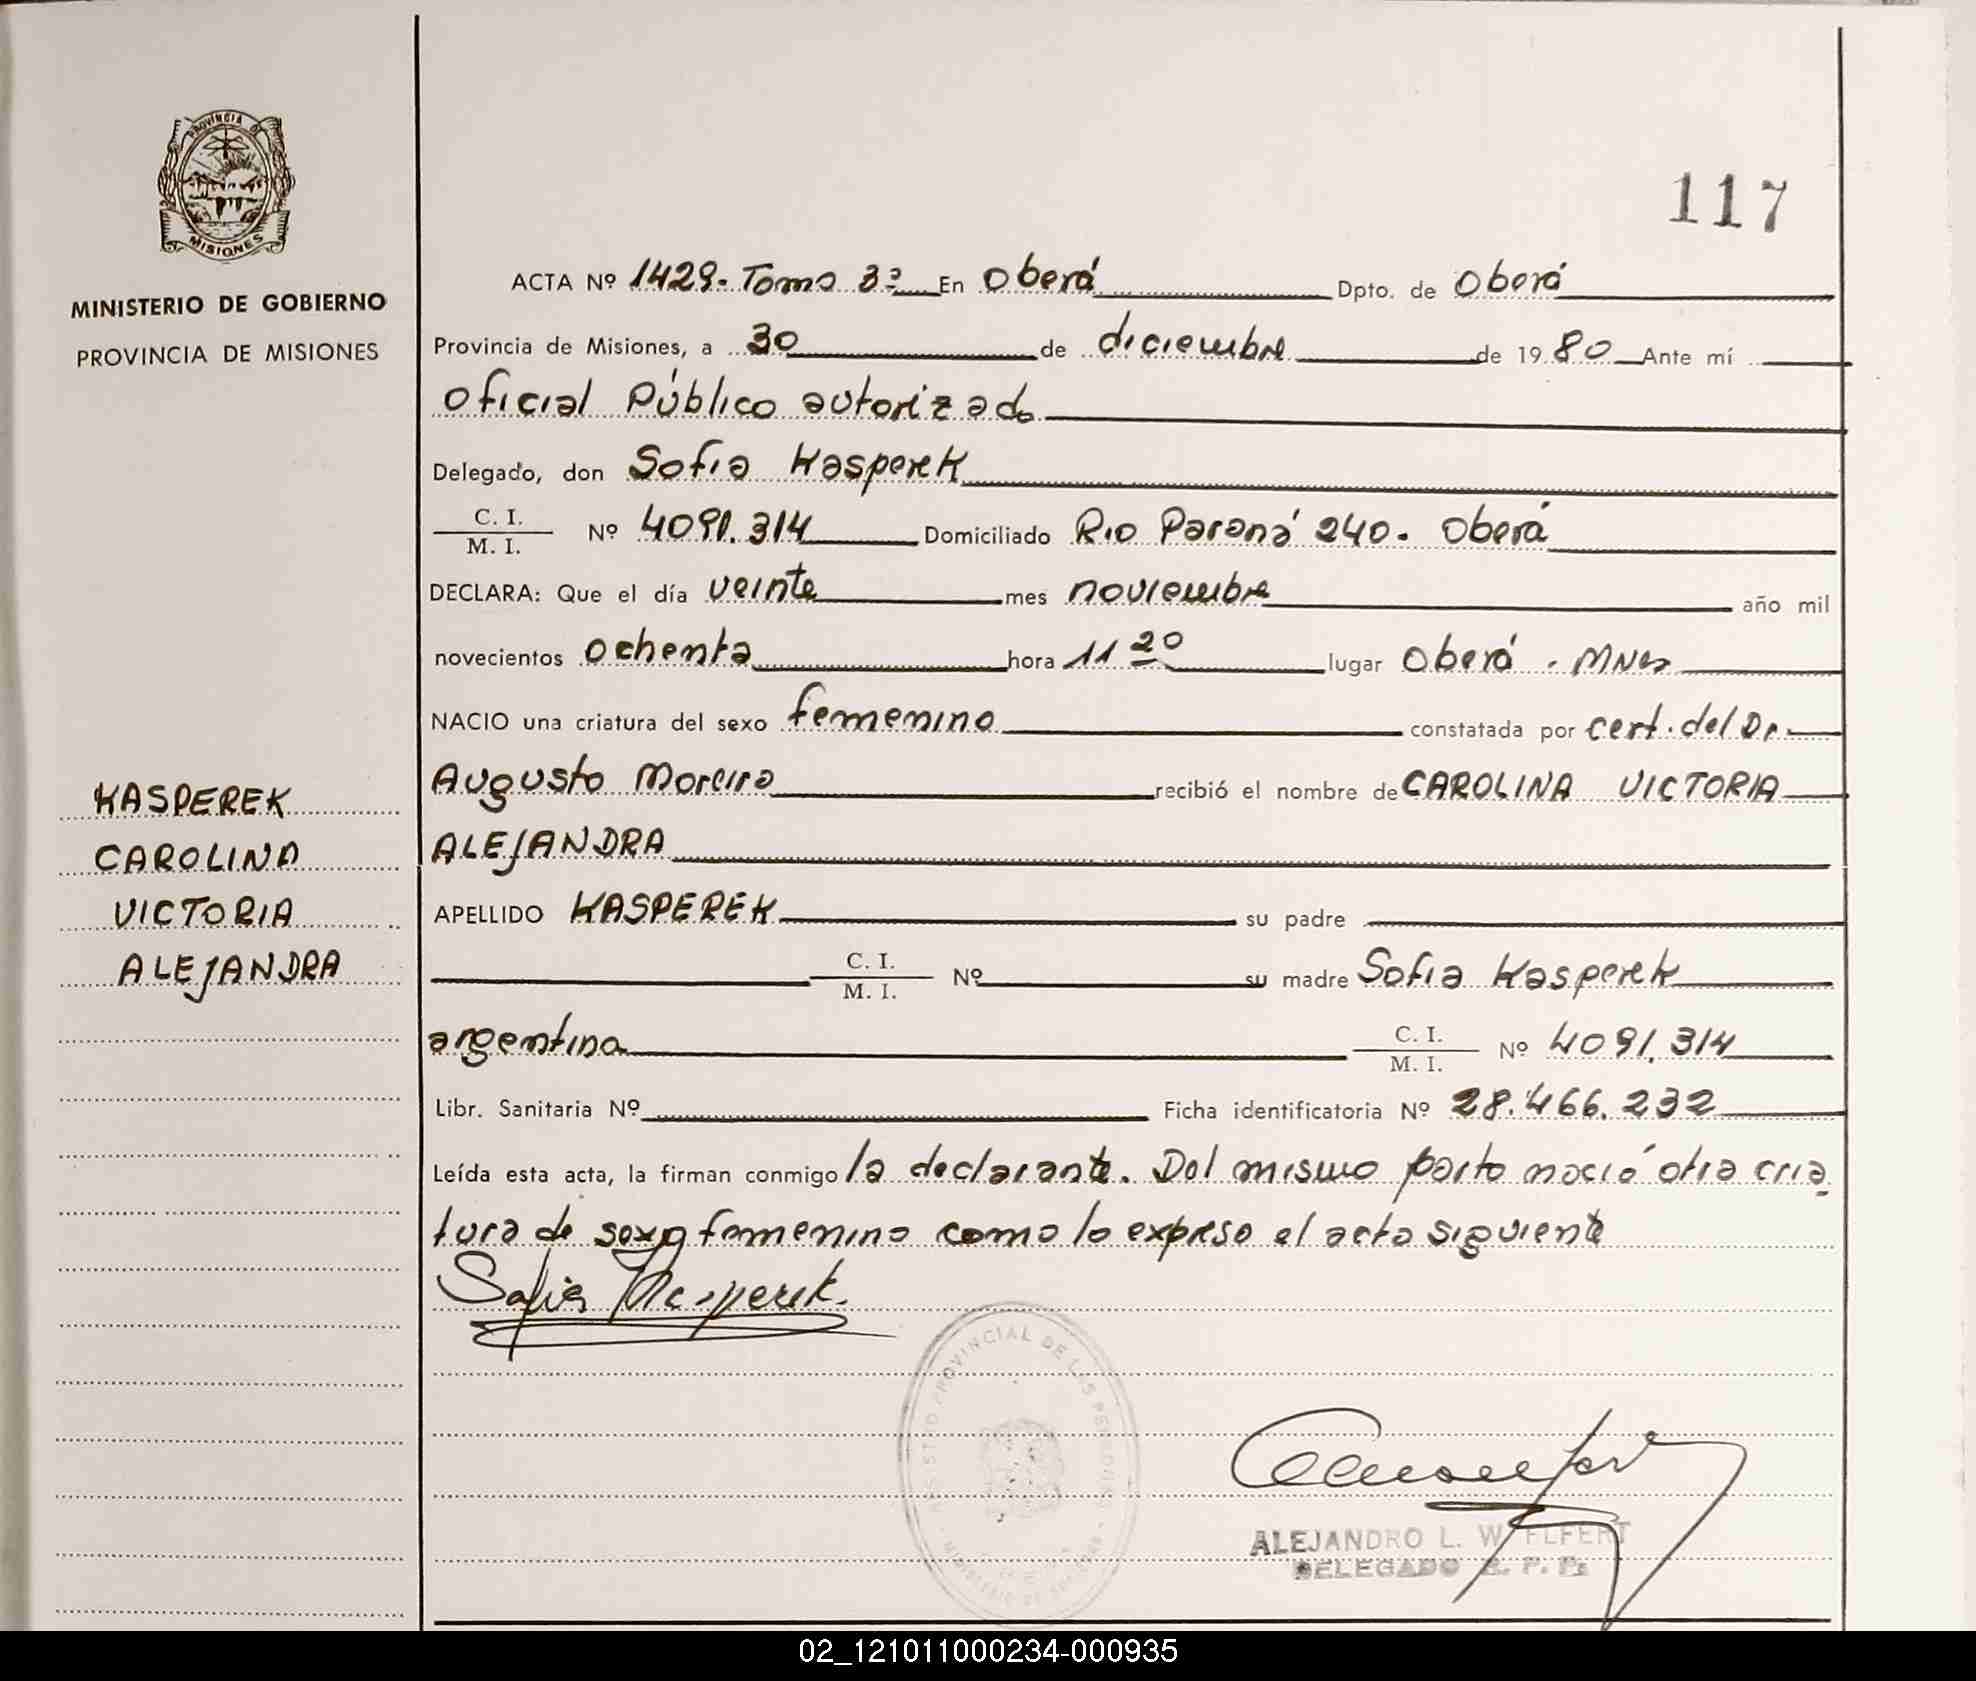 PROVINCIA DE
MISIONES
MINISTERIO DE GOBIERNO
PROVINCIA DE MISIONES
KASPEREK
CAROLINA
VICTORIA
ALEJANDRA
117
ACTA Nº 1429. Tomo 3º En Oberá Dpto. de Oberá
Provincia de Misiones, a 30 de diciembre de 1980 Ante mí
Oficial Público autorizado
Delegado, don Sofia Kasperek
C. I.
M. I.
Nº 4091.314 Domiciliado Rio Paraná 240. Oberá
DECLARA: Que el día veinte mes noviembre año mil
novecientos ochenta hora 11 20 lugar Oberá. Mnes
NACIO una criatura del sexo femenino constatada por cert. del Dr.
Augusto Moreira recibió el nombre de CAROLINA VICTORIA
ALEJANDRA
APELLIDO KASPEREK su padre
C. I.
M. I.
Nº su madre Sofia Kasperek
argentina C. I.
M. I.
Nº 4091.314
Libr. Sanitaria Nº Ficha identificatoria Nº 28.466.232
Leída esta acta, la firman conmigo la declarante. Del mismo parto nació otra cria
tura de sexo femenino como lo expresa el acta siguiente
Sofia Kasperek.
PROVINCIAL DE LAS PERSONAS
ALEJANDRO L. WELFERT
DELEGADO R. P. Ps
02_121011000234-000935